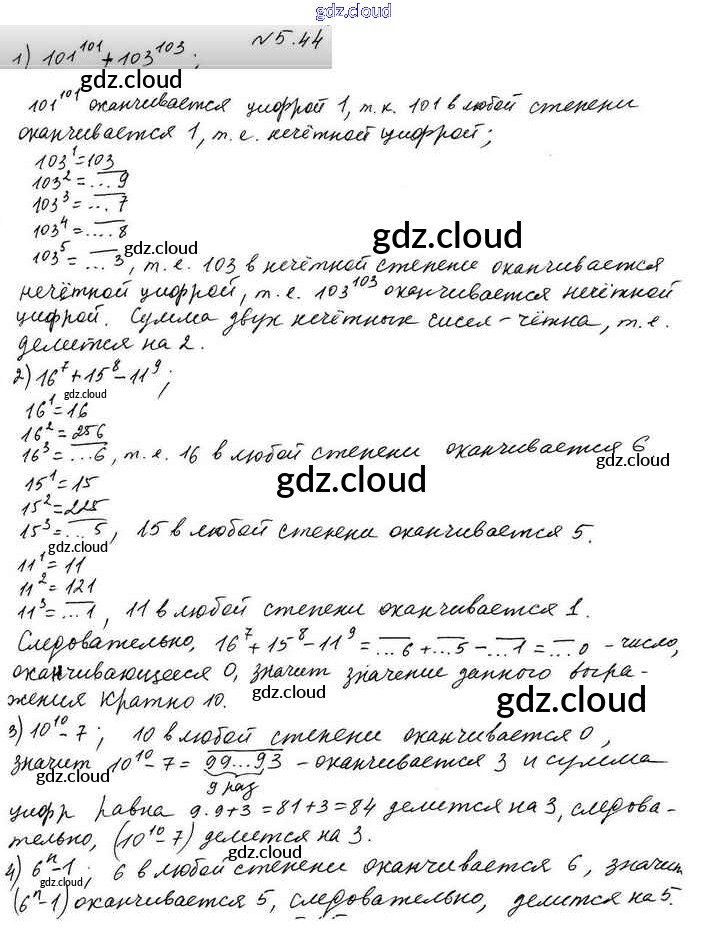 gdz.cloud
№5.44
1) 101^101 + 103^103;
gdz.cloud
101^101 оканчивается цифрой 1, т.к. 101 в любой степени
оканчивается 1, т.е. нечётной цифрой;
103^1 = 103
103^2 = ...9
103^3 = ...7
103^4 = ...8
gdz.cloud
103^5 = ...3, т.е. 103 в нечётной степени оканчивается
gdz.cloud
нечётной цифрой, т.е. 103^103 оканчивается нечётной
цифрой. Сумма двух нечётных чисел - чётна, т.е.
делится на 2.
2) 16^7 + 15^8 - 11^9;
gdz.cloud
16^1 = 16
16^2 = 256
16^3 = ...6, т.е. 16 в любой степени оканчивается 6
gdz.cloud
15^1 = 15
gdz.cloud
15^2 = 225
15^3 = ...5, 15 в любой степени оканчивается 5.
gdz.cloud
11^1 = 11
11^2 = 121
11^3 = ...1, 11 в любой степени оканчивается 1.
Следовательно, 16^7 + 15^8 - 11^9 = ...6 + ...5 - ...1 = ...0 - число,
оканчивающееся 0, значит значение данного выра-
жения кратно 10.
gdz.cloud
gdz.cloud
3) 10^10 - 7; 10 в любой степени оканчивается 0,
значит 10^10 - 7 = 99...93 - оканчивается 3 и сумма
gdz.cloud
9 раз
цифр равна 9·9+3 = 81+3 = 84 делится на 3, следова-
тельно, (10^10 - 7) делится на 3.
gdz.cloud
4) 6^n - 1; 6 в любой степени оканчивается 6, значит
gdz.cloud
(6^n - 1) оканчивается 5, следовательно, делится на 5.